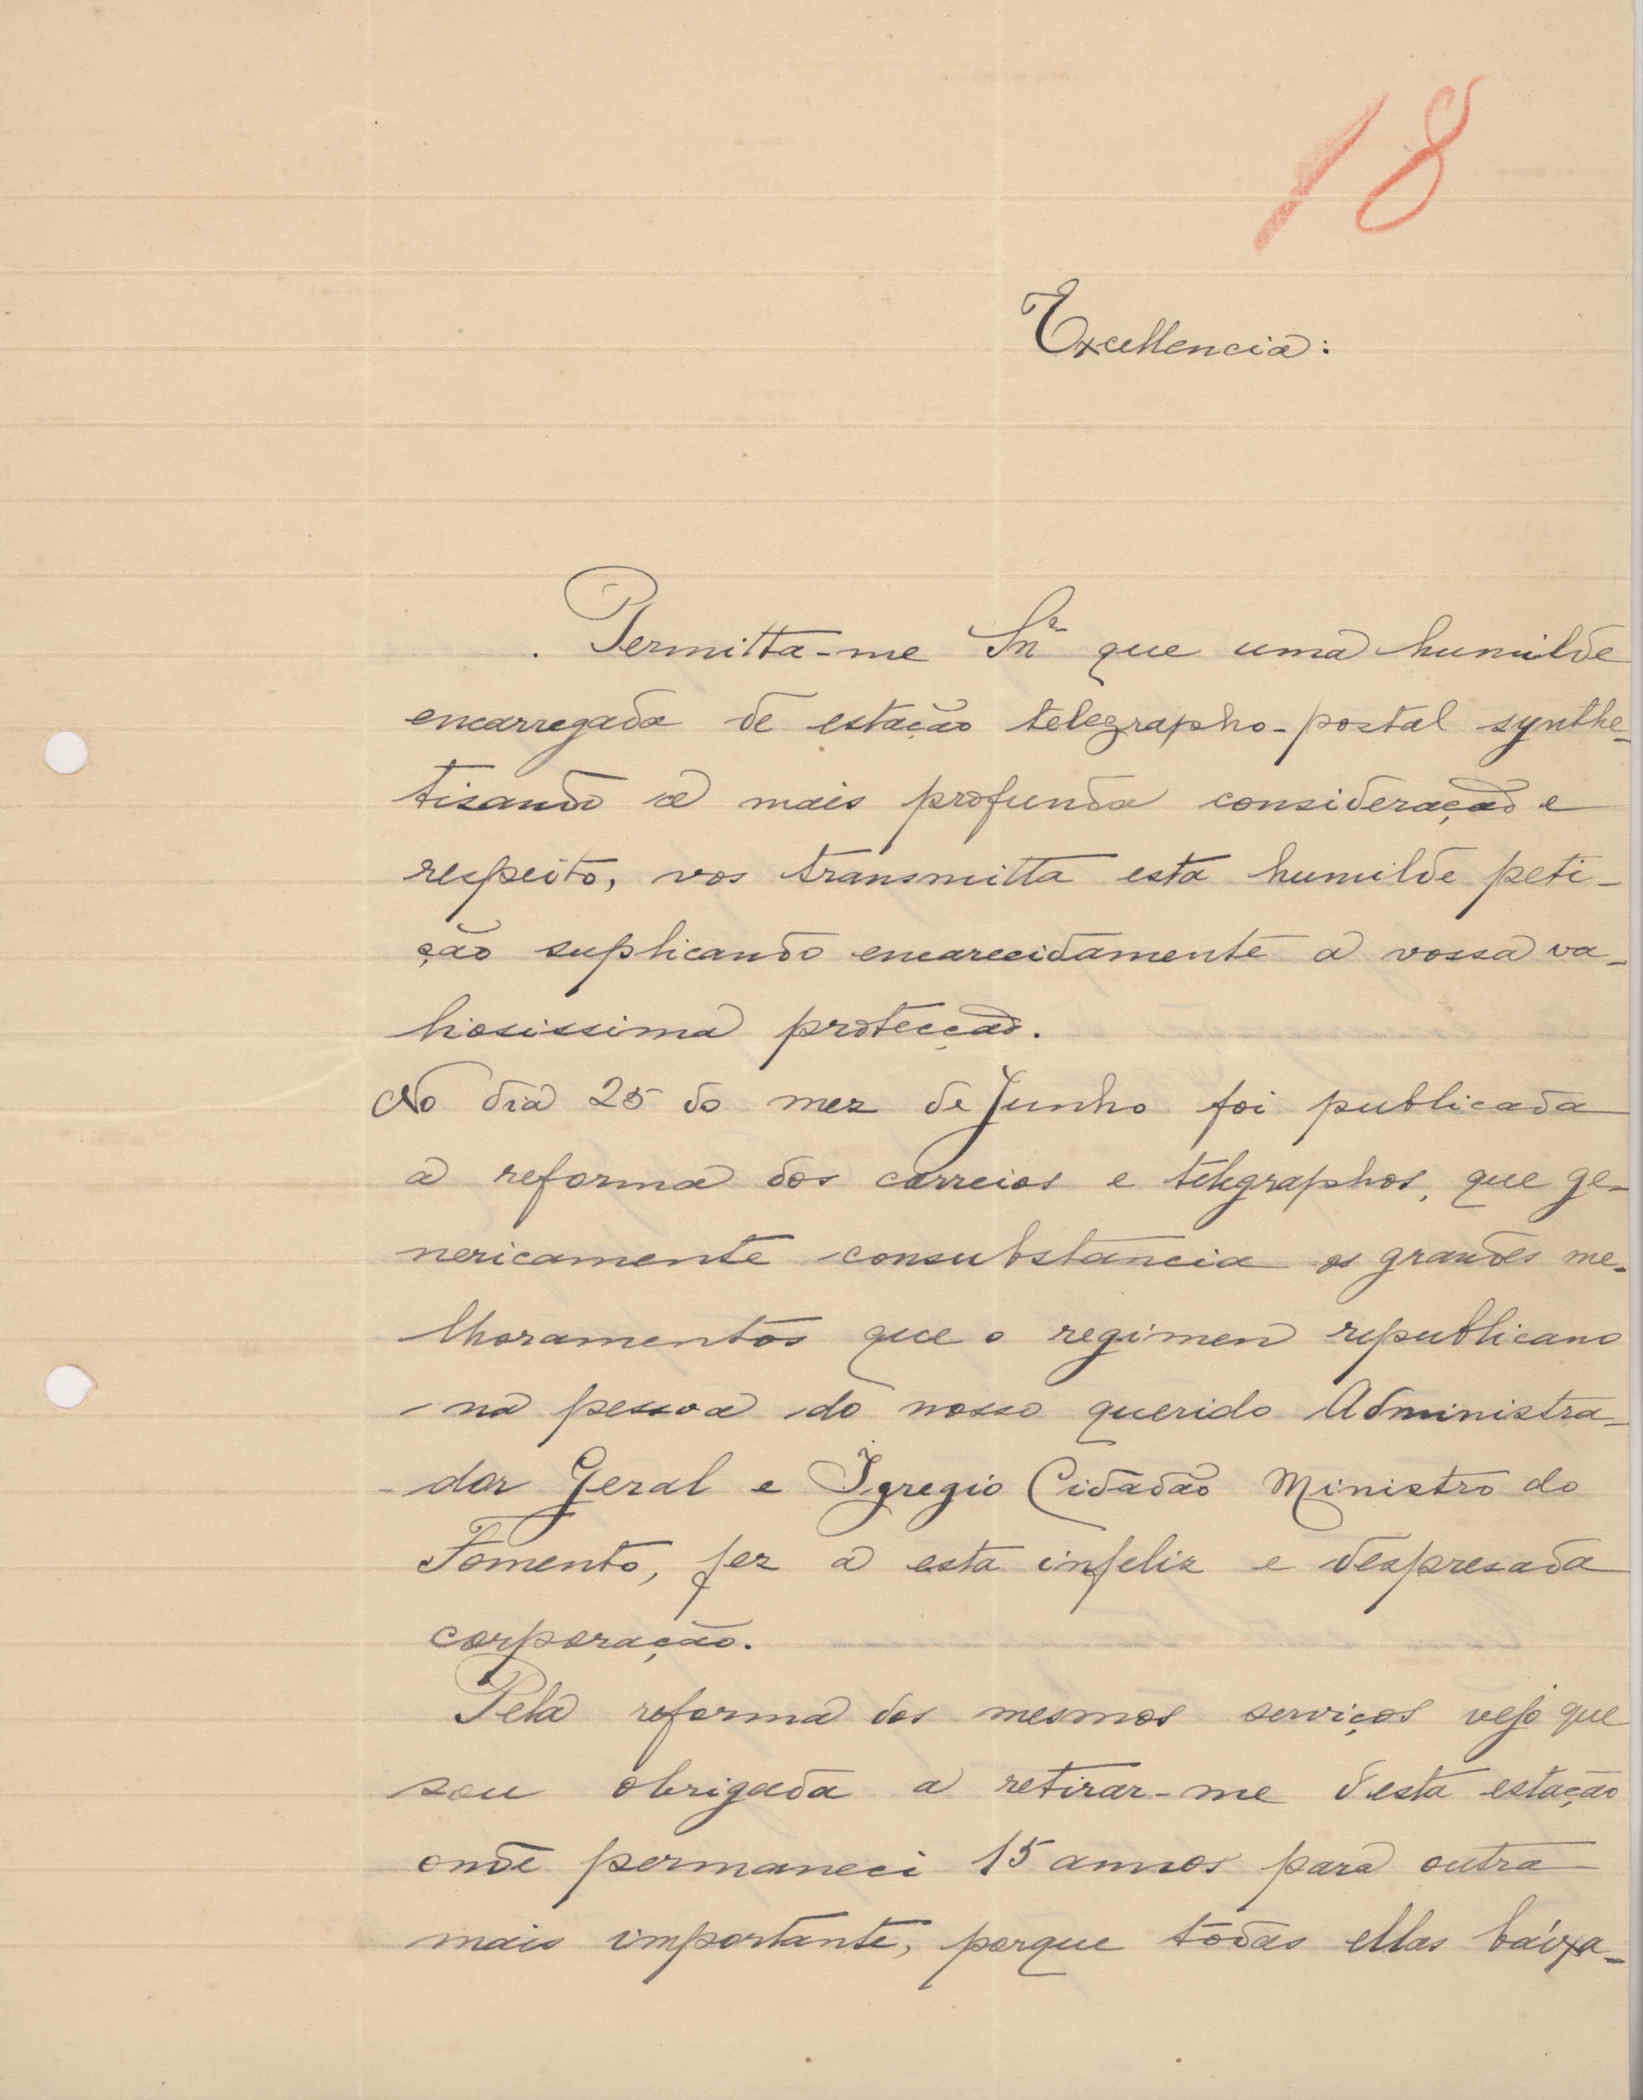 18
Excellencia:
Permitta-me Snr que uma humilde
encarregada de estação telegrapho-postal synthe-
tisando a mais profunda consideração e
respeito, vos transmitta esta humilde peti-
ção suplicando encarecidamente a vossa va-
liosissima protecção.
No dia 25 do mez de Junho foi publicada
a reforma dos correios e telegraphos, que ge-
nericamente consubstancia os grandes me-
lhoramentos que o regimen republicano
na pessoa do nosso querido Administra-
dor Geral e Igregio Cidadão Ministro do
Fomento, fez a esta infeliz e despresada
corporação.
Pela reforma dos mesmos serviços vejo que
sou obrigada a retirar-me d'esta estação
onde permaneci 15 annos para outra
mais importante, porque todas ellas baixa-